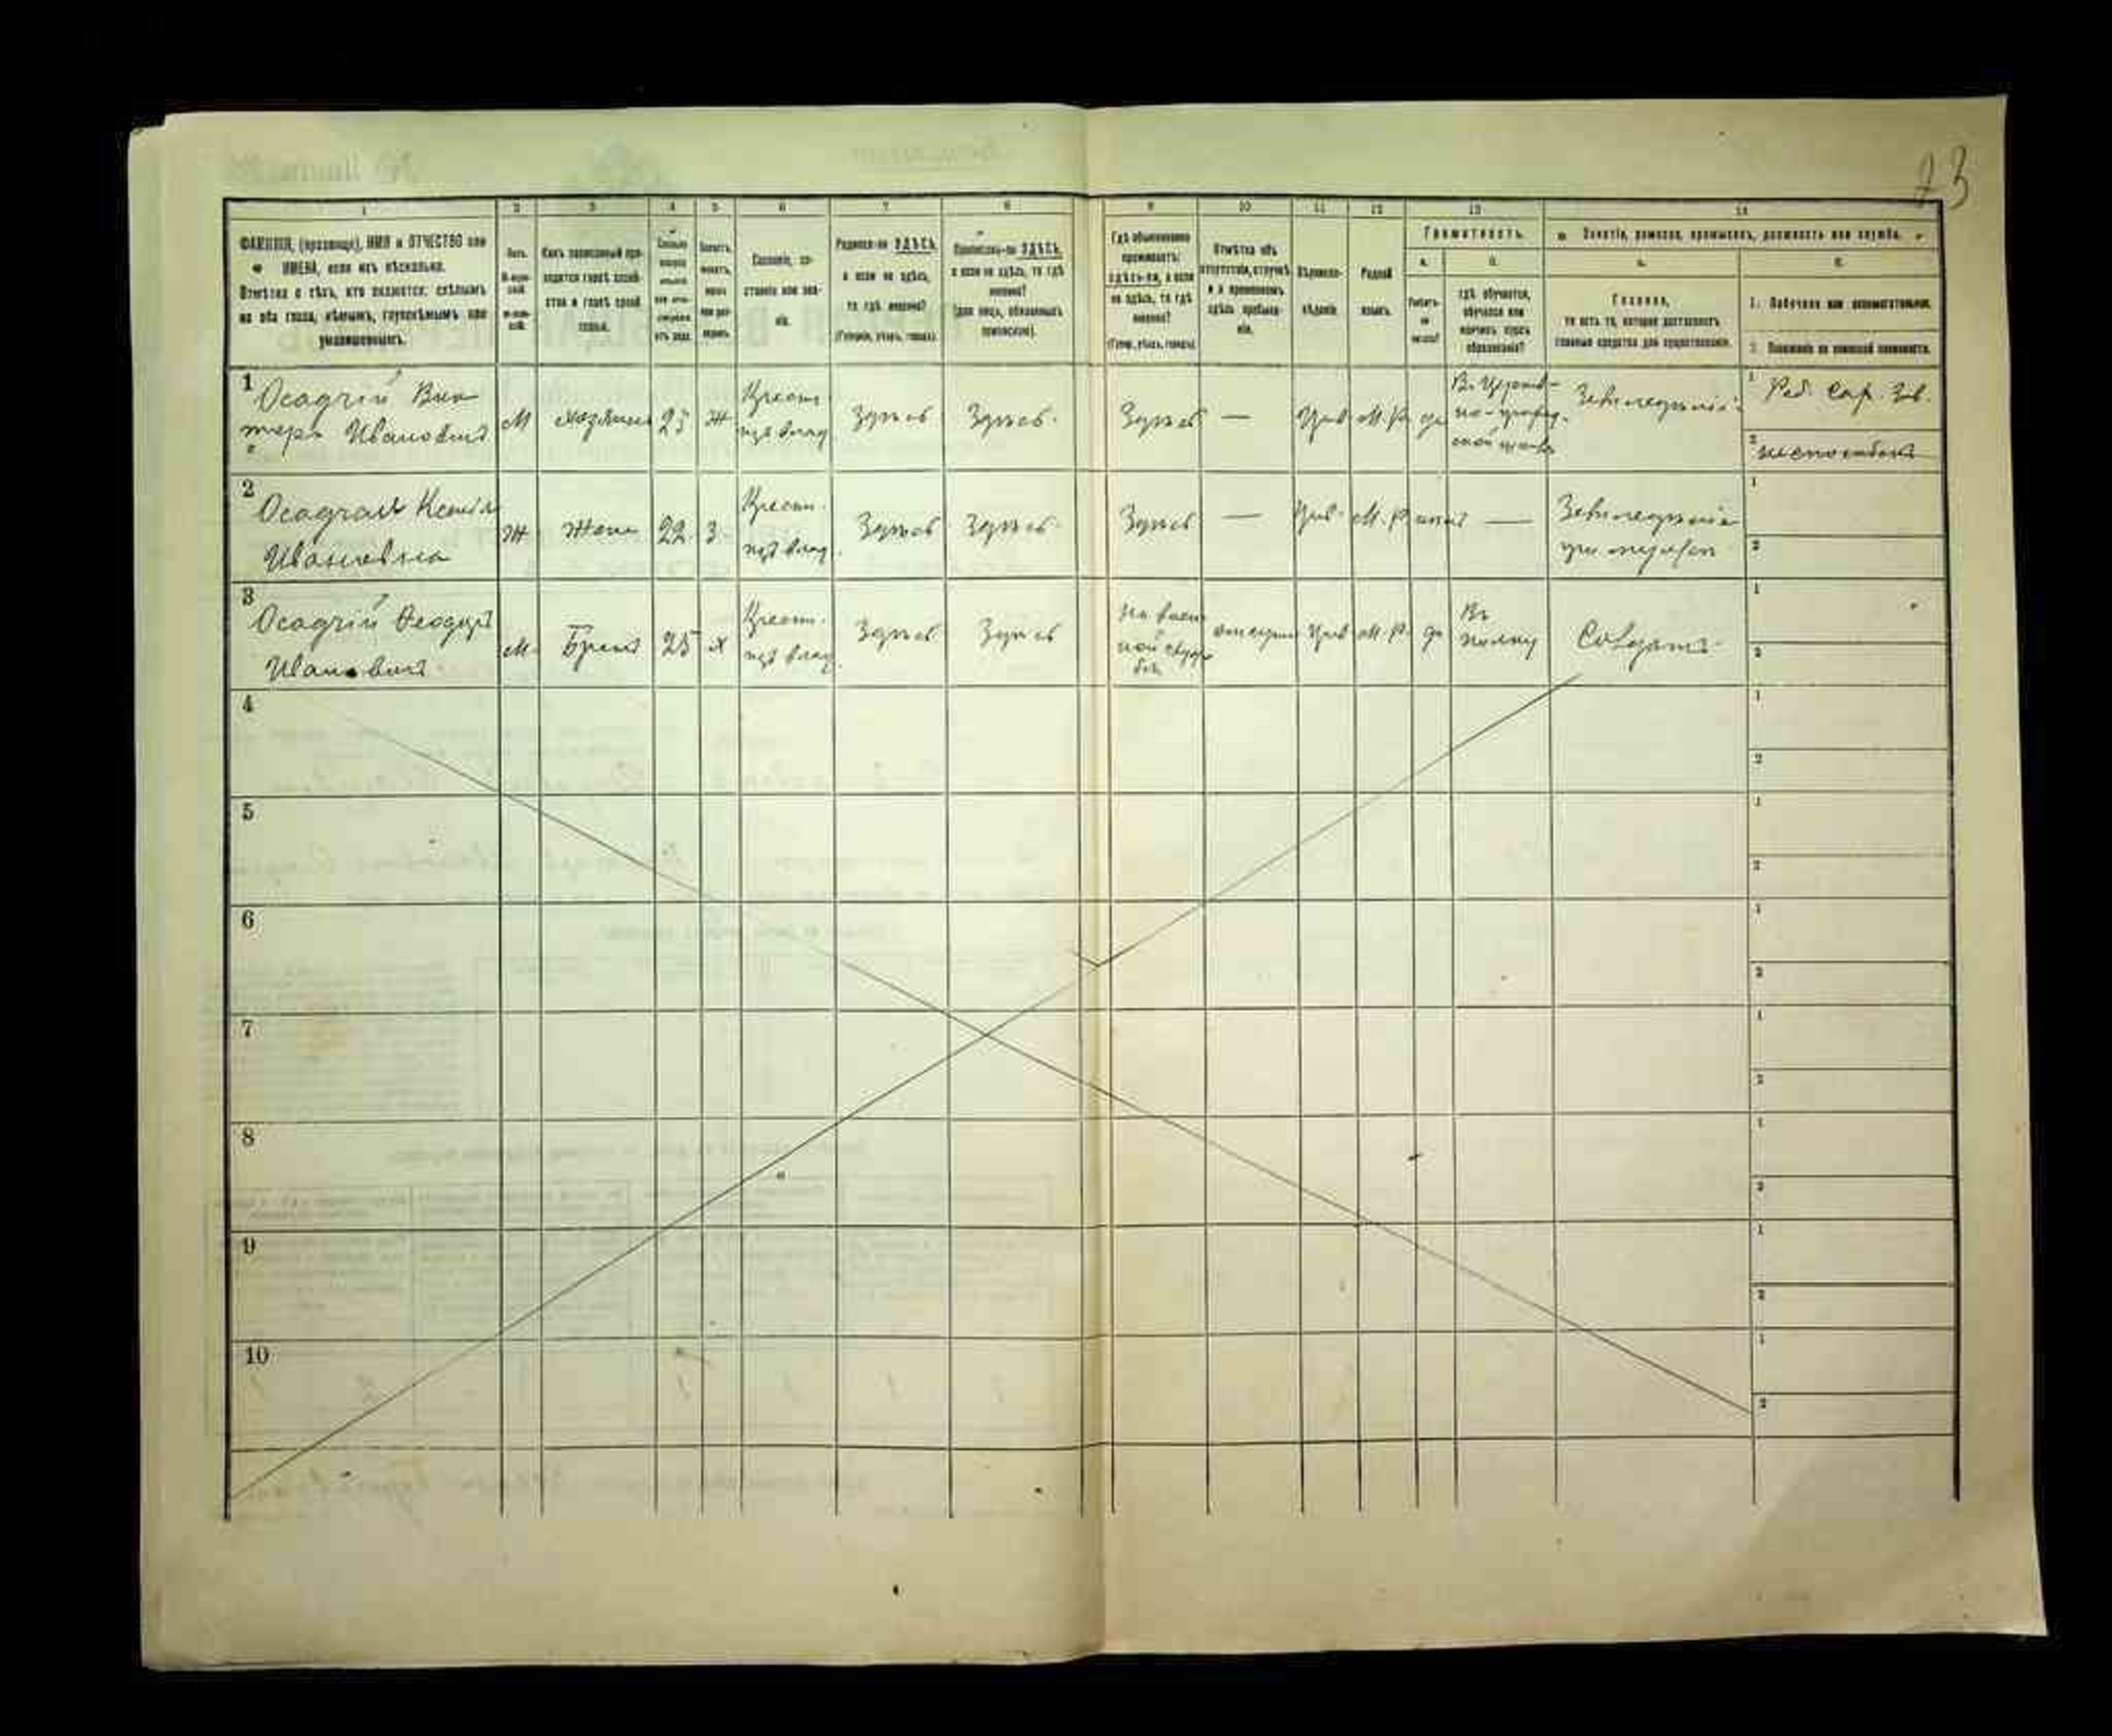 23
1 2 3 4 5 6 7 8 9 10 11 12 13 14
ФАМИЛІЯ, (прозвище), ИМЯ и ОТЧЕСТВО или
ИМЕНА, если ихъ нѣсколько.
Отмѣтка о тѣхъ, кто окажется: слѣпымъ
на оба глаза, нѣмымъ, глухонѣмымъ или
умалишеннымъ.
Полъ.
Какъ записанный при-
ходится главѣ хозяй-
ства и главѣ своей
семьи.
Сословіе, со-
стояніе или зва-
ніе.
Родился-ли ЗДѢСЬ,
а если не здѣсь,
то гдѣ именно?
(Губернія, уѣздъ, городъ).
Приписанъ-ли ЗДѢСЬ,
а если не здѣсь, то гдѣ
именно?
(для лицъ, обязанныхъ
припискою).
Гдѣ обыкновенно
проживаетъ:
здѣсь-ли, а если
не здѣсь, то гдѣ
именно?
(Губер., уѣздъ, городъ).
Отмѣтка объ
отсутствіи, отлучкѣ
и о временномъ
здѣсь пребыва-
ніи.
Вѣроиспо-
вѣданіе.
Родной
языкъ.
Грамотность.
а.
б.
Гдѣ обучается,
обучался или
кончилъ курсъ
образованія?
Занятіе, ремесло, промыселъ, должность или служба.
а.
Главное,
то есть то, которое доставляетъ
главныя средства для существованія.
б.
1. Побочное или вспомогательное.
2. Положеніе по воинской повинности.
1 Осадчій Вик
торъ Ивановичъ
М хозяинъ 23 Ж
Крестьян.
изъ влад.
Здѣсь Здѣсь Здѣсь — М.Р. да
Въ Церков-
но-приход-
ской школѣ
Земледѣліе
1
2
2 Осадчая Ксенія
Ивановна
Ж Жена 22 З
Крестьян.
изъ влад.
Здѣсь Здѣсь Здѣсь — М.Р. —
Земледѣліе
при мужѣ
1
2
3 Осадчій Ѳеодоръ
Ивановичъ
М Братъ 25 Х
Крестьян.
изъ влад.
Здѣсь Здѣсь
На воен
ной служ
бѣ
М.Р. да
Въ
полку
Солдатъ
1
2
4 1
2
5 1
2
6 1
2
7 1
2
8 1
2
9 1
2
10 1
2